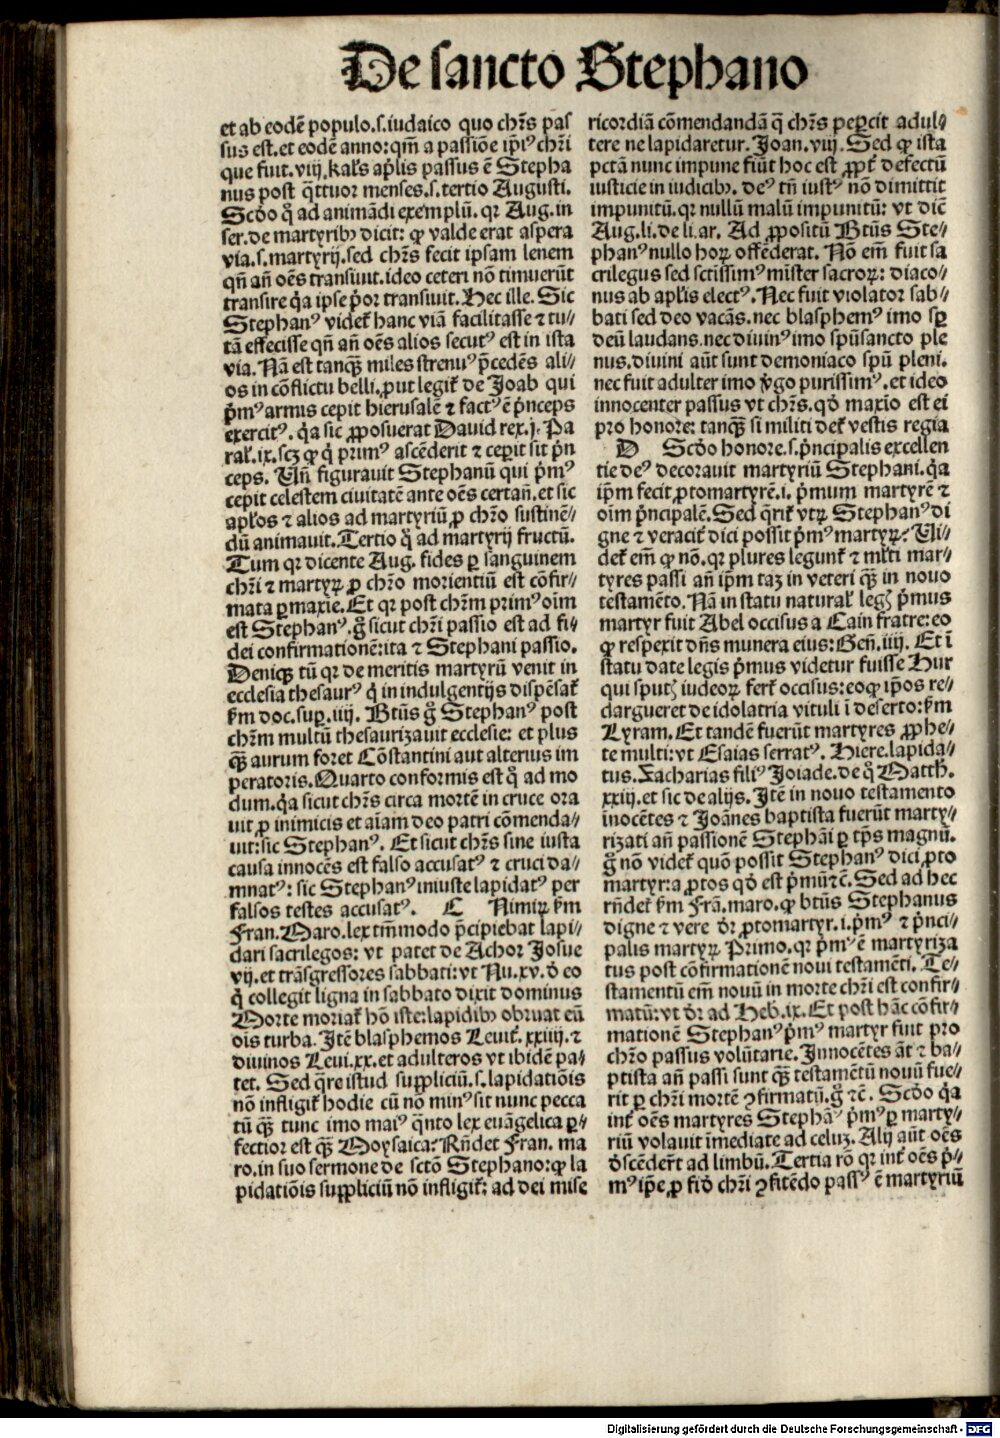 De sancto Stephano
et ab eodē populo.s.iudaico quo chr̄s pas
sus est.et eodē anno:qm̄ a passiōe ip̄iꝰ chr̄i
que fuit.viij.kal's ap̄lis passus ē Stepha
nus post q̄ttuor menses.s.tertio Augusti.
Scd̄o q̊ ad animādi exemplū. qr Aug. in
ser.de martyribꝫ dicit: ꝙ valde erat aspera
via.s.martyrij.sed chr̄s fecit ipsam lenem
qn̄ an̄ oēs transiuit.ideo ceteri nō timuerūt
transire q̇a ipse ṗor transiuit. Hec ille. Sic
Stephanꝰ videt̄ hanc viā facilitasse ⁊ tu⸗
tā effecisse qn̄ an̄ oēs alios secutꝰ est in ista
via. Nā est tanqꝫ miles strenuꝰ p̄cedēs ali⸗
os in cōflictu belli.ꝓut legit̄ de Joab qui
ṗmꝰ armis cepit hierusalē ⁊ factꝰ ē ṗnceps
exercitꝰ. q̇a sic ꝓposuerat Dauid rex.j. Pa
ral'.ix.scꝫ ꝙ q̇ primꝰ ascēderit ⁊ ceperit sit ṗn
ceps. Vn̄ figurauit Stephanū qui ṗmꝰ
cepit celestem ciuitatē ante oēs certan̄.et sic
apl'os ⁊ alios ad martyriū ꝓ chr̄o sustinē⸗
dū animauit. Tertio q̊ ad martyrij fructū.
Tum qr dicente Aug. fides ꝑ sanguinem
chr̄i ⁊ martyrꝝ ꝓ chr̄o morientiū est cōfir⸗
mata ꝑmaxie. Et qr post chr̄m primꝰ oīm
est Stephanꝰ. g̊ sicut chr̄i passio est ad fi⸗
dei confirmationē:ita ⁊ Stephani passio.
Deniqꝫ tū qr de meritis martyrū venit in
ecclesia thesaurꝰ q̇ in indulgentijs dispēsat̄
ẜm doc.suꝑ.iiij. Btūs g̊ Stephanꝰ post
chr̄m multū thesaurizauit ecclesie: et plus
qꝫ aurum foret Cōstantini aut alterius im
peratoris. Quarto conformis est q̊ ad mo
dum.q̇a sicut chr̄s circa mortē in cruce ora
uit ꝓ inimicis et aīam deo patri cōmenda⸗
uit:sic Stephanꝰ. Et sicut chr̄s sine iusta
causa innocēs est falso accusatꝰ ⁊ cruci da⸗
mnatꝰ: sic Stephanꝰ iniuste lapidatꝰ per
falsos testes accusatꝰ. C Nimirꝝ ẜm
Fran. Maro.lex tm̄modo p̄cipiebat lapi⸗
dari sacrilegos: vt patet de Achor Josue
vij.et trāsgressores sabbati:vt Nu.xv.d̄ eo
q̇ collegit ligna in sabbato dixit dominus
Morte moriat̄ hō iste:lapidibꝫ obruat eū
oīs turba. Itē blasphemos Leuit̄. xxiiij. ⁊
diuinos Leui.xx.et adulteros vt ibidē pa⸗
tet. Sed q̄re istud suppliciū.s.lapidatiōis
nō infligit̄ hodie cū nō minꝰ sit nunc pecca
tū qꝫ tunc imo maiꝰ q̄nto lex euāgelica ꝑ⸗
fectior est qꝫ Moysaica? Rn̄det Fran. ma
ro.in suo sermone de sctō Stephano:ꝙ la
pidatiōis suppliciū nō infligit̄: ad dei mise
ricordiā cōmendandā q̄ chr̄s peꝑcit adul⸗
tere ne lapidaretur. Joan.viij. Sed ꝙ ista
pctā nunc impune fiūt hoc est ꝓpt̄ defectū
iusticie in iudicibꝫ. deꝰ tn̄ iustꝰ nō dimittit
impunitū.qr nullū malū impunitū: vt dic̄
Aug.li.de li.ar. Ad ꝓpositū Btūs Ste⸗
phanꝰ nullo horꝝ offēderat. Nō em̄ fuit sa
crilegus sed sctissimꝰ mīster sacrorꝝ: diaco⸗
nus ab apl'is electꝰ. Nec fuit violator sab⸗
bati sed deo vacās.nec blasphemꝰ imo sꝑ
deū laudans.nec diuinꝰ imo spūsancto ple
nus.diuini aūt sunt demoniaco spū pleni.
nec fuit adulter imo v̇go purissimꝰ.et ideo
innocenter passus vt chr̄s.qd̄ maxīo est ei
pro honore: tanqꝫ si militi det̄ vestis regia
D Scd̄o honore.s.ṗncipalis excellen
tie deꝰ decorauit martyriū Stephani.q̇a
ip̄m fecit ꝓtomartyrē.i. ṗmum martyrē ⁊
oīm ṗncipalē. Sed q̄rit̄ vtrꝝ Stephanꝰ di
gne ⁊ veracit̄ dici possit ṗmꝰ martyrꝝ? Vi⸗
det̄ em̄ ꝙ nō.qr plures legunt̄ ⁊ mlti mar⸗
tyres passi an̄ ip̄m tā in veteri qꝫ in nouo
testamēto. Nā in statu natural' legꝭ ṗmus
martyr fuit Abel occisus a Cain fratre:eo
ꝙ respexit dn̄s munera eius: Gen̄.iiij. Et ī
statu date legis ṗmus videtur fuisse Hur
qui sputꝭ iudeorꝝ fert̄ occisus:eoꝙ ip̄os re⸗
dargueret de idolatria vituli ī deserto:ẜm
Lyram. Et tandē fuerūt martyres ꝓphe⸗
te multi:vt Esaias serratꝰ. Hiere.lapida⸗
tus. Zacharias filiꝰ Joiade.de q̊ Matth̄.
xxiij.et sic de alijs. Itē in nouo testamento
inocētes ⁊ Joānes baptista fuerūt marty⸗
rizati an̄ passionē Stephāi ꝑ tp̄s magnū.
g̊ nō videt̄ quō possit Stephanꝰ dici ꝓto
martyr:a protos qd̄ est ṗmū⁊c̄. Sed ad hec
rn̄det̄ ẜm Frā.maro.ꝙ btūs Stephanus
digne ⁊ vere dr̄ ꝓtomartyr.i.ṗmꝰ ⁊ ṗnci⸗
palis martyrꝝ Primo.qr ṗmꝰ ē martyriza
tus post cōfirmationē noui testamēti. Te⸗
stamentū em̄ nouū in morte chr̄i est confir⸗
matū:vt dr̄ ad Heb̄.ix. Et post hāc cōfir⸗
mationē Stephanꝰ ṗmꝰ martyr fuit pro
chr̄o passus volūtarie. Innocētes āt ⁊ ba⸗
ptista an̄ passi sunt qꝫ testamētū nouū fue⸗
rit ꝑ chr̄i mortē ꝯfirmatū.g̊ ⁊c̄. Scd̄o q̇a
int̄ oēs martyres Stephāꝰ ṗmꝰ ꝑ marty⸗
riū volauit īmediate ad celuꝫ. Alij aūt oēs
d̄scēder̄t ad limbū. Tertia rō qr int̄ oēs ṗ⸗
mꝰ ip̄e ꝓ fid̄ chr̄i ꝯfitēdo passꝰ ē martyriū
Digitalisierung gefördert durch die Deutsche Forschungsgemeinschaft - DFG